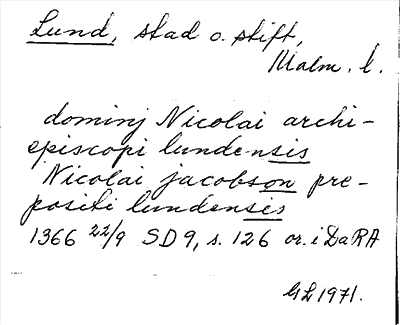 Lund, stad o. stift,
Malm. l.
dominj Nicolai archi-
episcopi lundensis
Nicolai jacobson pre-
positi lundensis
1366 22/9 SD 9, s. 126 or. i DaRA
GL 1971.